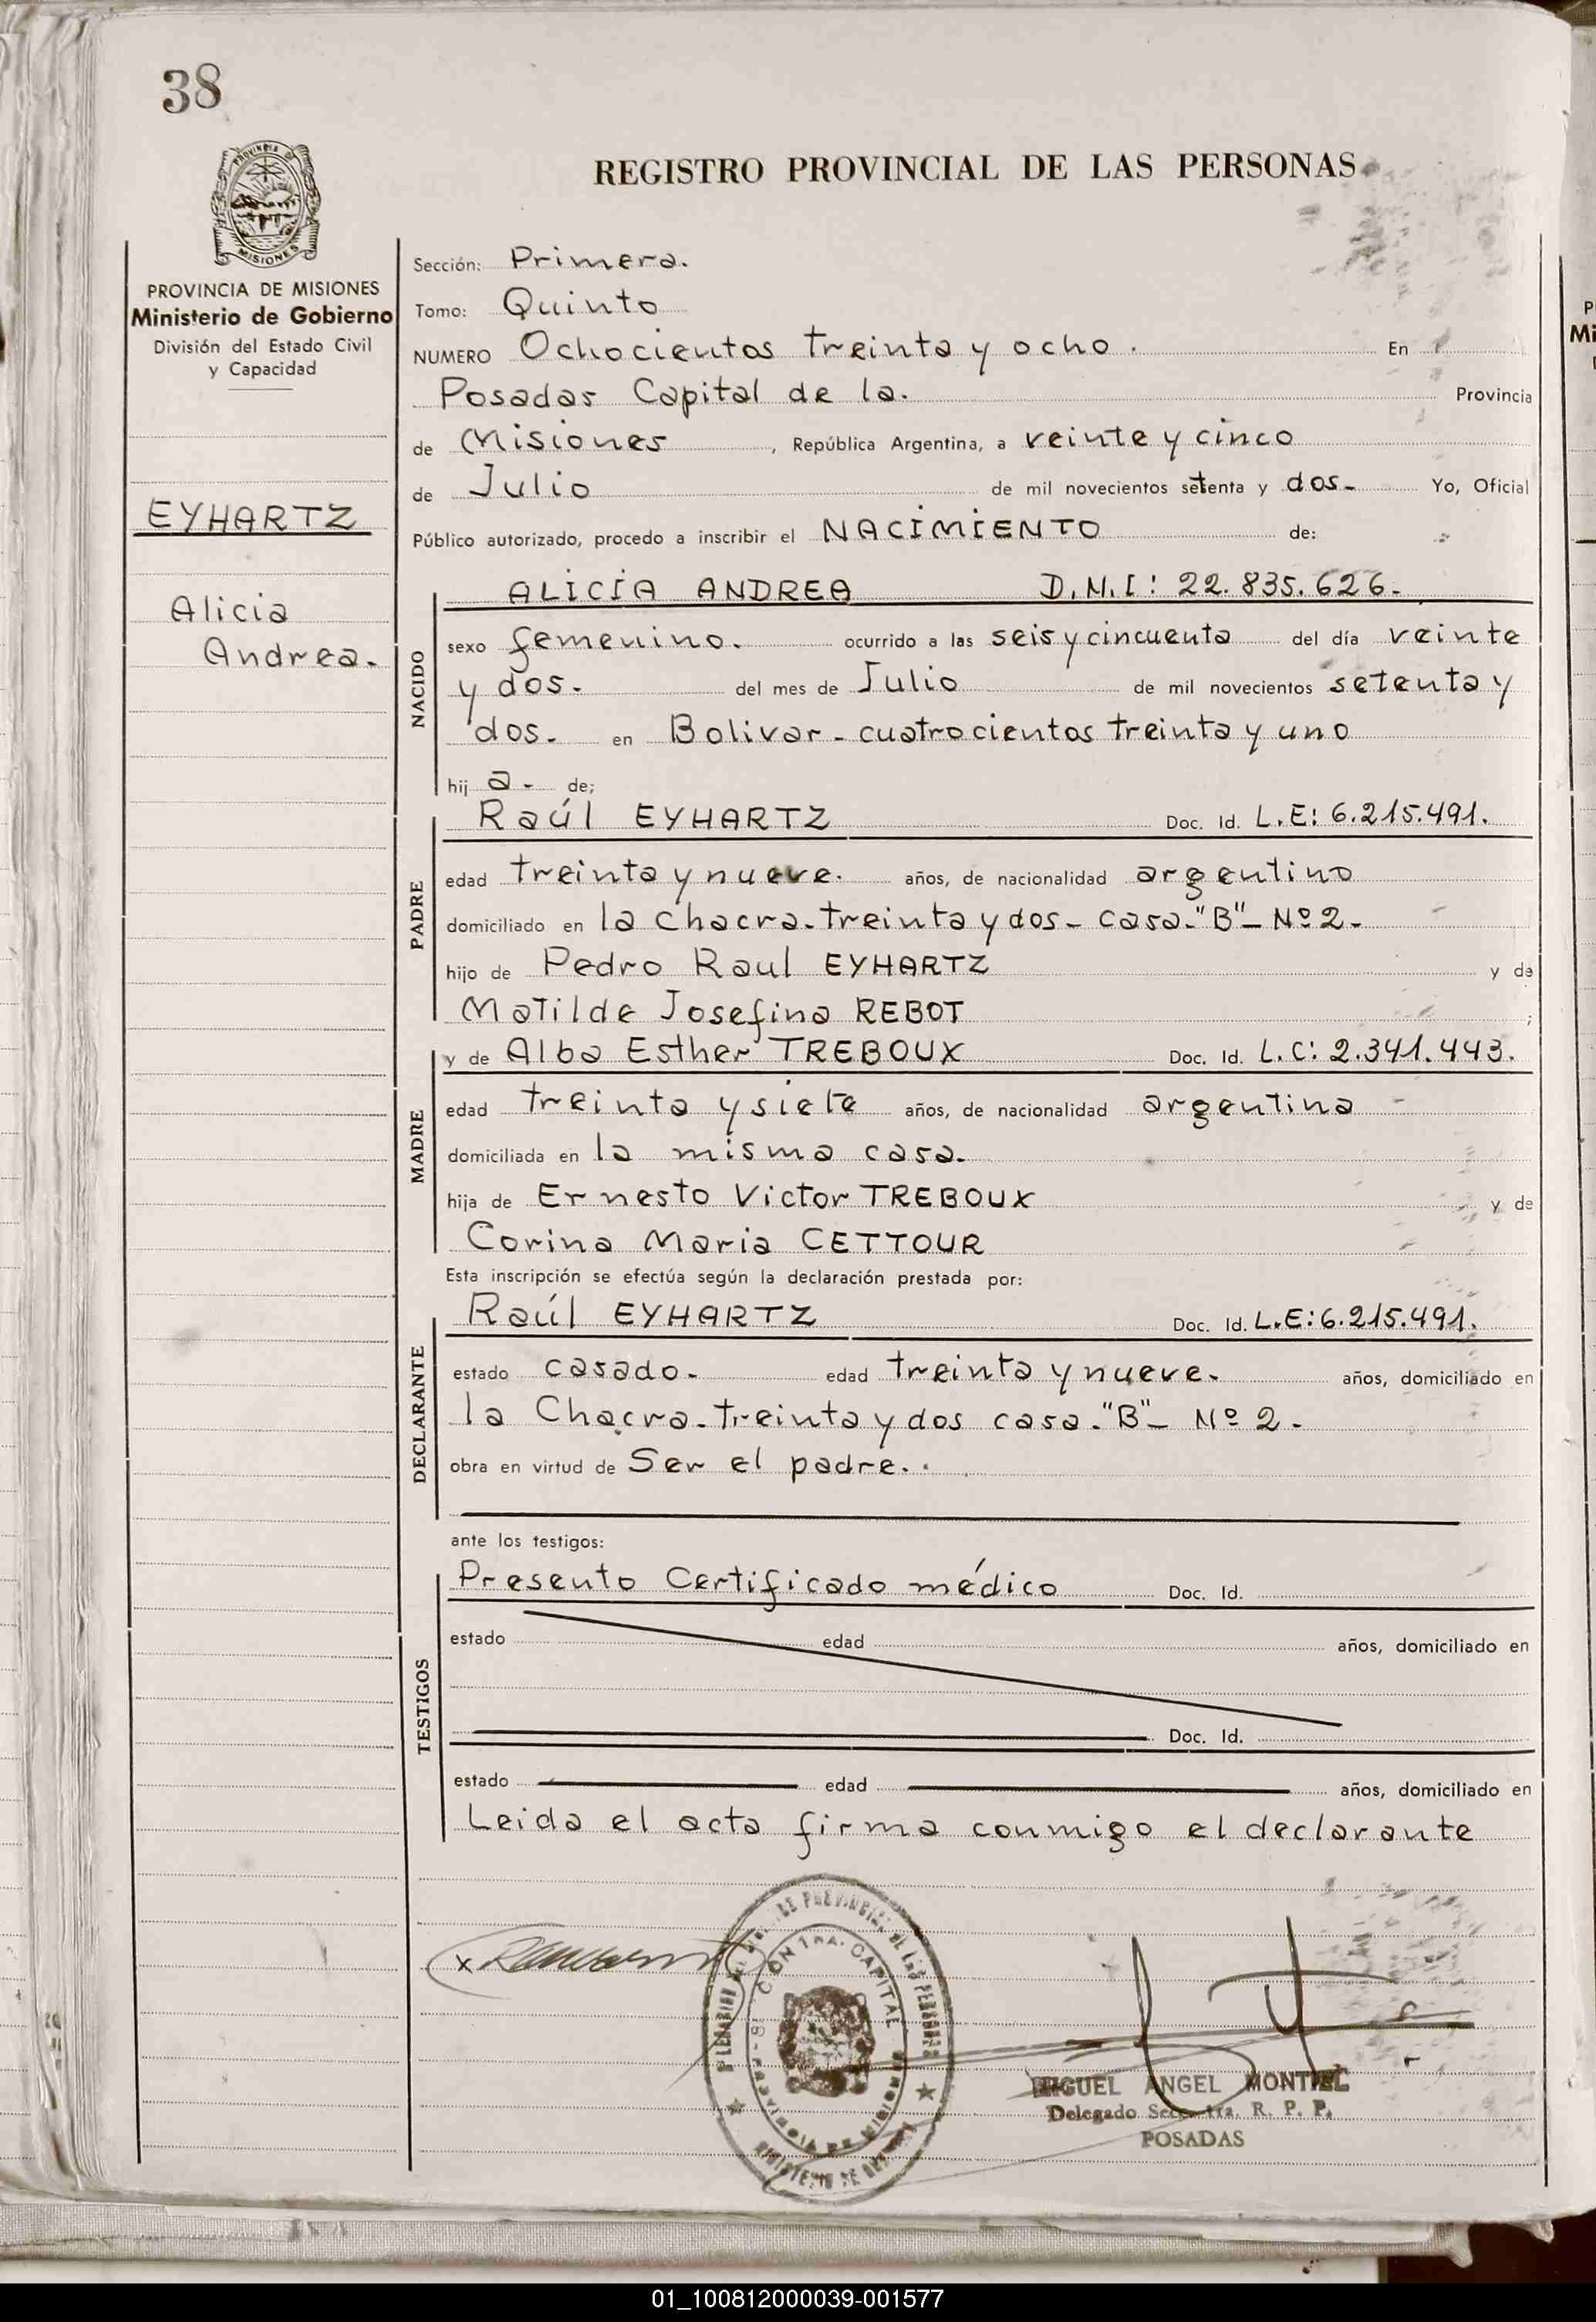 38
REGISTRO PROVINCIAL DE LAS PERSONAS
MISIONES
PROVINCIA DE MISIONES
Ministerio de Gobierno
División del Estado Civil
y Capacidad
EYHARTZ
Alicia
Andrea.
Sección: Primera.
Tomo: Quinto
NUMERO Ochocientos treinta y ocho. En
Posadas Capital de la. Provincia
de Misiones, República Argentina, a veinte y cinco
de Julio de mil novecientos setenta y dos- Yo, Oficial
Público autorizado, procedo a inscribir el NACIMIENTO de:
NACIDO
ALICIA ANDREA D.N.I: 22.835.626-
sexo femenino. ocurrido a las seis y cincuenta del día veinte
y dos- del mes de Julio de mil novecientos setenta y
dos- en Bolivar - cuatrocientos treinta y uno
hij a- de;
PADRE
Raúl EYHARTZ Doc. Id. L.E: 6.215.491.
edad treinta y nueve. años, de nacionalidad argentino
domiciliado en la chacra-treinta y dos- casa-"B"- Nº 2-
hijo de Pedro Raul EYHARTZ y de
Matilde Josefina REBOT ;
MADRE
y de Alba Esther TREBOUX Doc. Id. L.C: 2.341.443.
edad treinta y siete años, de nacionalidad argentina -
domiciliada en la misma casa.
hija de Ernesto Victor TREBOUX y de
Corina Maria CETTOUR
Esta inscripción se efectúa según la declaración prestada por:
DECLARANTE
Raúl EYHARTZ Doc. Id. L.E: 6.215.491.
estado casado- edad treinta y nueve- años, domiciliado en
la Chacra-treinta y dos casa-"B"- Nº 2-
obra en virtud de Ser el padre.
ante los testigos:
TESTIGOS
Presento Certificado médico Doc. Id.
estado edad años, domiciliado en
Doc. Id.
estado edad años, domiciliado en
Leida el acta firma conmigo el declarante
x
CAPITAL
MIGUEL ANGEL MONTIEL
Delegado Secc. 1ra. R. P. P.
POSADAS
01_100812000039-001577